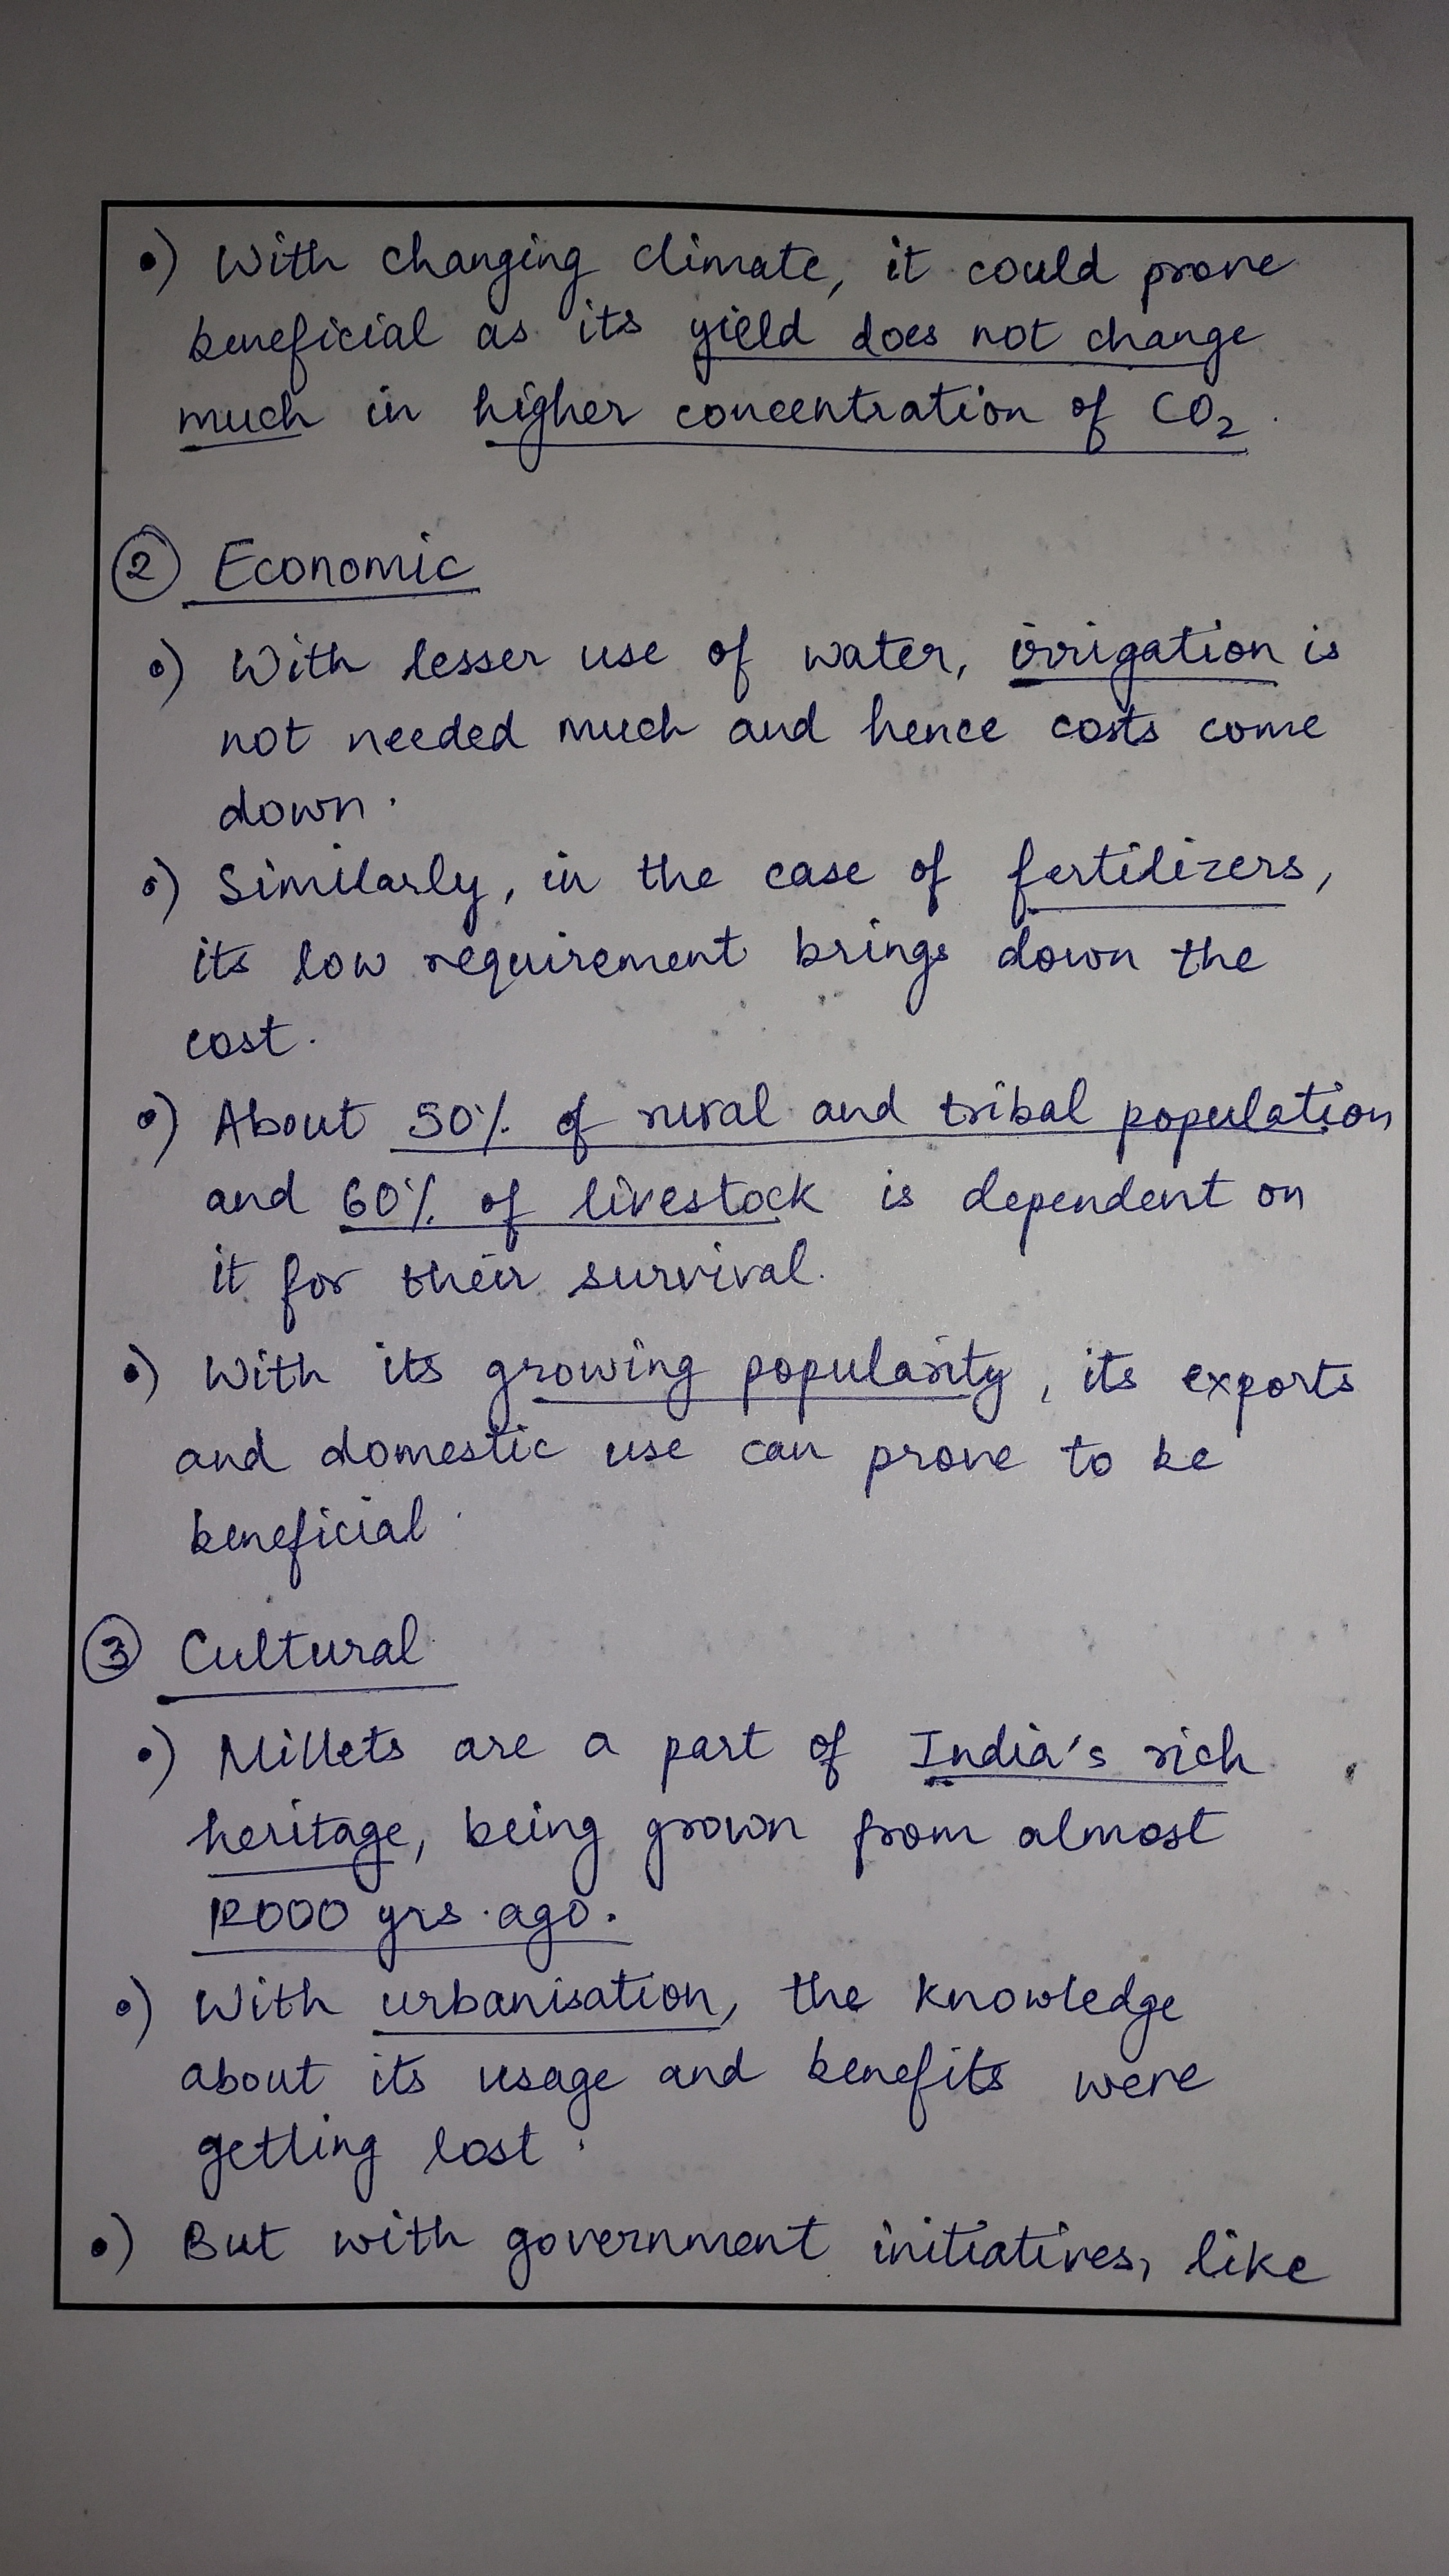 •) With changing climate, it could prove
beneficial as its yield does not change
much in higher concentration of CO₂.
② Economic
•) With lesser use of water, irrigation is
not needed much and hence costs come
down.
•) Similarly, in the case of fertilizers,
its low requirement brings down the
cost.
•) About 50% of rural and tribal population
and 60% of livestock is dependent on
it for their survival.
•) With its growing popularity, its exports
and domestic use can prove to be
beneficial.
③ Cultural
•) Millets are a part of India's rich
heritage, being grown from almost
12000 yrs. ago.
•) With urbanisation, the knowledge
about its usage and benefits were
getting lost.
•) But with government initiatives, like